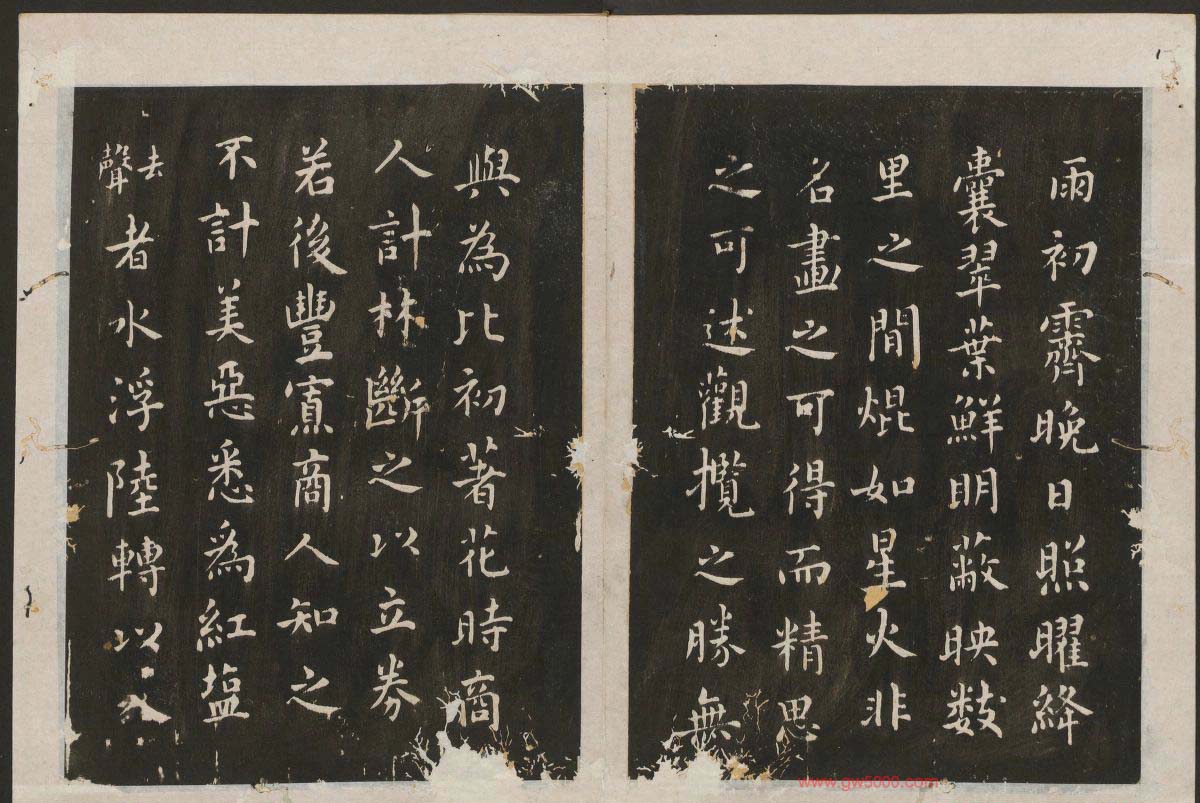 雨初霽晚日照曜絳
囊翠葉鮮明蔽映数
里之間焜如星火非
名畫之可得而精思
之可述觀攬之勝無
與為比初著花時商
人計林斷之以立券
若後豐寡商人知之
不計美惡悉為紅塩
去聲者水浮陸轉以入
www.gw5000.com